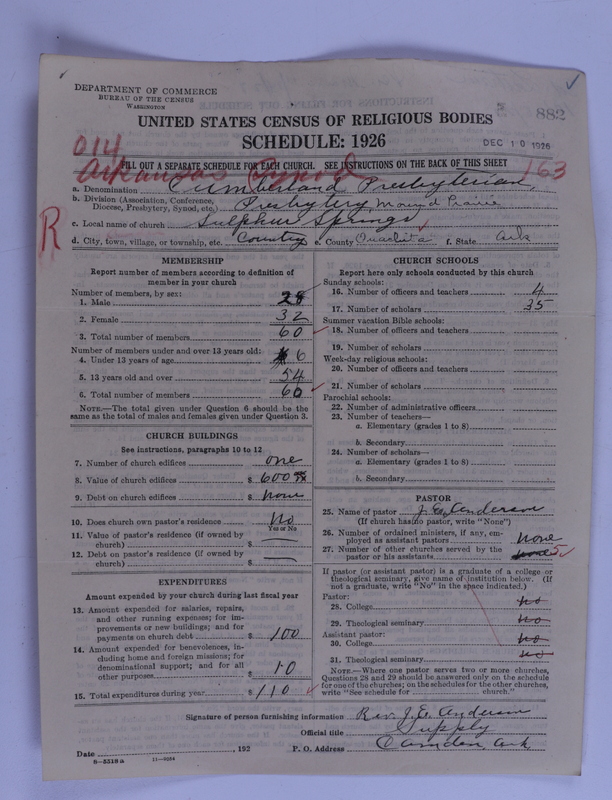 DEPARTMENT OF COMMERCE
BUREAU OF THE CENSUS
WASHINGTON
882
UNITED STATES CENSUS OF RELIGIOUS BODIES
SCHEDULE: 1926
DEC 10 1926
014
Arkansas Synod
163
FILL OUT A SEPARATE SCHEDULE FOR EACH CHURCH. SEE INSTRUCTIONS ON THE BACK OF THIS SHEET
a. Denomination Cumberland Presbyterian
b. Division (Association, Conference, Diocese, Presbytery, Synod, etc.) Presbytery Mound Prairie
c. Local name of church Sulphur Springs
R
d. City, town, village, or township, etc. Country e. County Ouachita f. State Ark
MEMBERSHIP
Report number of members according to definition of
member in your church
Number of members, by sex:
1. Male 28
2. Female 32
3. Total number of members 60
Number of members under and over 13 years old:
4. Under 13 years of age 6
5. 13 years old and over 54
6. Total number of members 60
NOTE.—The total given under Question 6 should be the
same as the total of males and females given under Question 3.
CHURCH BUILDINGS
See instructions, paragraphs 10 to 12
7. Number of church edifices one
8. Value of church edifices $ 600
9. Debt on church edifices $ none
10. Does church own pastor's residence No
Yes or No
11. Value of pastor's residence (if owned by
church) $
12. Debt on pastor's residence (if owned by
church) $
EXPENDITURES
Amount expended by your church during last fiscal year
13. Amount expended for salaries, repairs,
and other running expenses; for im-
provements or new buildings; and for
payments on church debt $ 100
14. Amount expended for benevolences, in-
cluding home and foreign missions; for
denominational support; and for all
other purposes $ 10
15. Total expenditures during year $ 110
CHURCH SCHOOLS
Report here only schools conducted by this church
Sunday schools:
16. Number of officers and teachers 4
17. Number of scholars 35
Summer vacation Bible schools:
18. Number of officers and teachers
19. Number of scholars
Week-day religious schools:
20. Number of officers and teachers
21. Number of scholars
Parochial schools:
22. Number of administrative officers
23. Number of teachers—
a. Elementary (grades 1 to 8)
b. Secondary
24. Number of scholars—
a. Elementary (grades 1 to 8)
b. Secondary
PASTOR
25. Name of pastor J. E. Anderson
(If church has no pastor, write "None")
26. Number of ordained ministers, if any, em-
ployed as assistant pastors none
27. Number of other churches served by the
pastor or his assistants none 5
If pastor (or assistant pastor) is a graduate of a college or
theological seminary, give name of institution below. (If
not a graduate, write "No" in the space indicated.)
Pastor:
28. College no
29. Theological seminary no
Assistant pastor:
30. College no
31. Theological seminary no
NOTE.—Where one pastor serves two or more churches,
Questions 28 and 29 should be answered only on the schedule
for one of the churches; on the schedules for the other churches,
write "See schedule for church."
Signature of person furnishing information Rev. J. E. Anderson
Official title Supply
Date 192 P. O. Address Camden, Ark.
8-5318a 11-9034